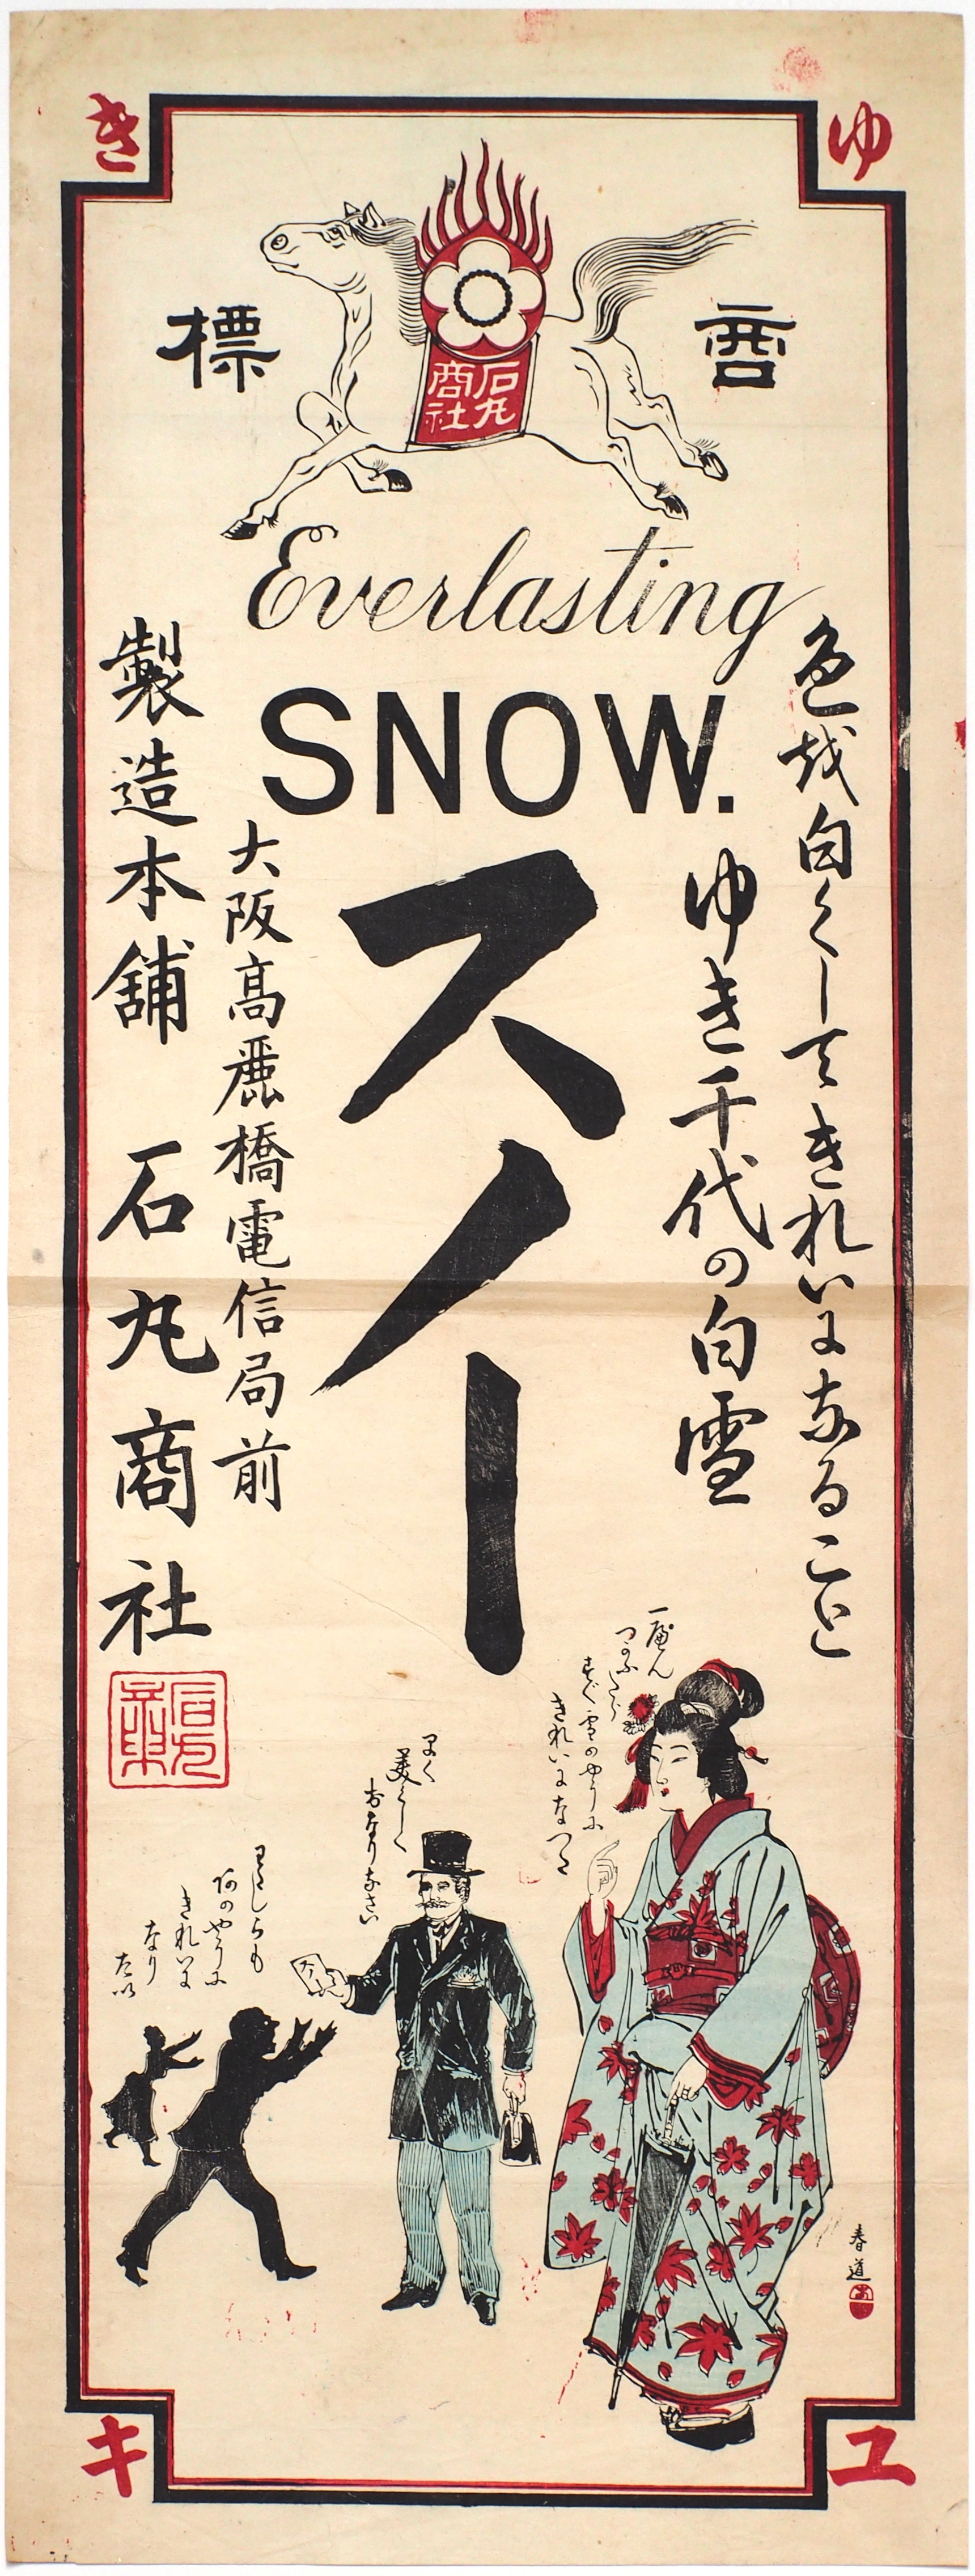 ゆ
き
商
標
石丸
商社
Everlasting
SNOW.
色越白くしてきれいになること
ゆき千代の白雪
スノー
大阪高麗橋電信局前
製造本舗 石丸商社
すぐ雪のやうに
きれいになつた
早く
美しく
おなりなさい
わたしらも
きれいに
なり
たい
春道
ユ
キ